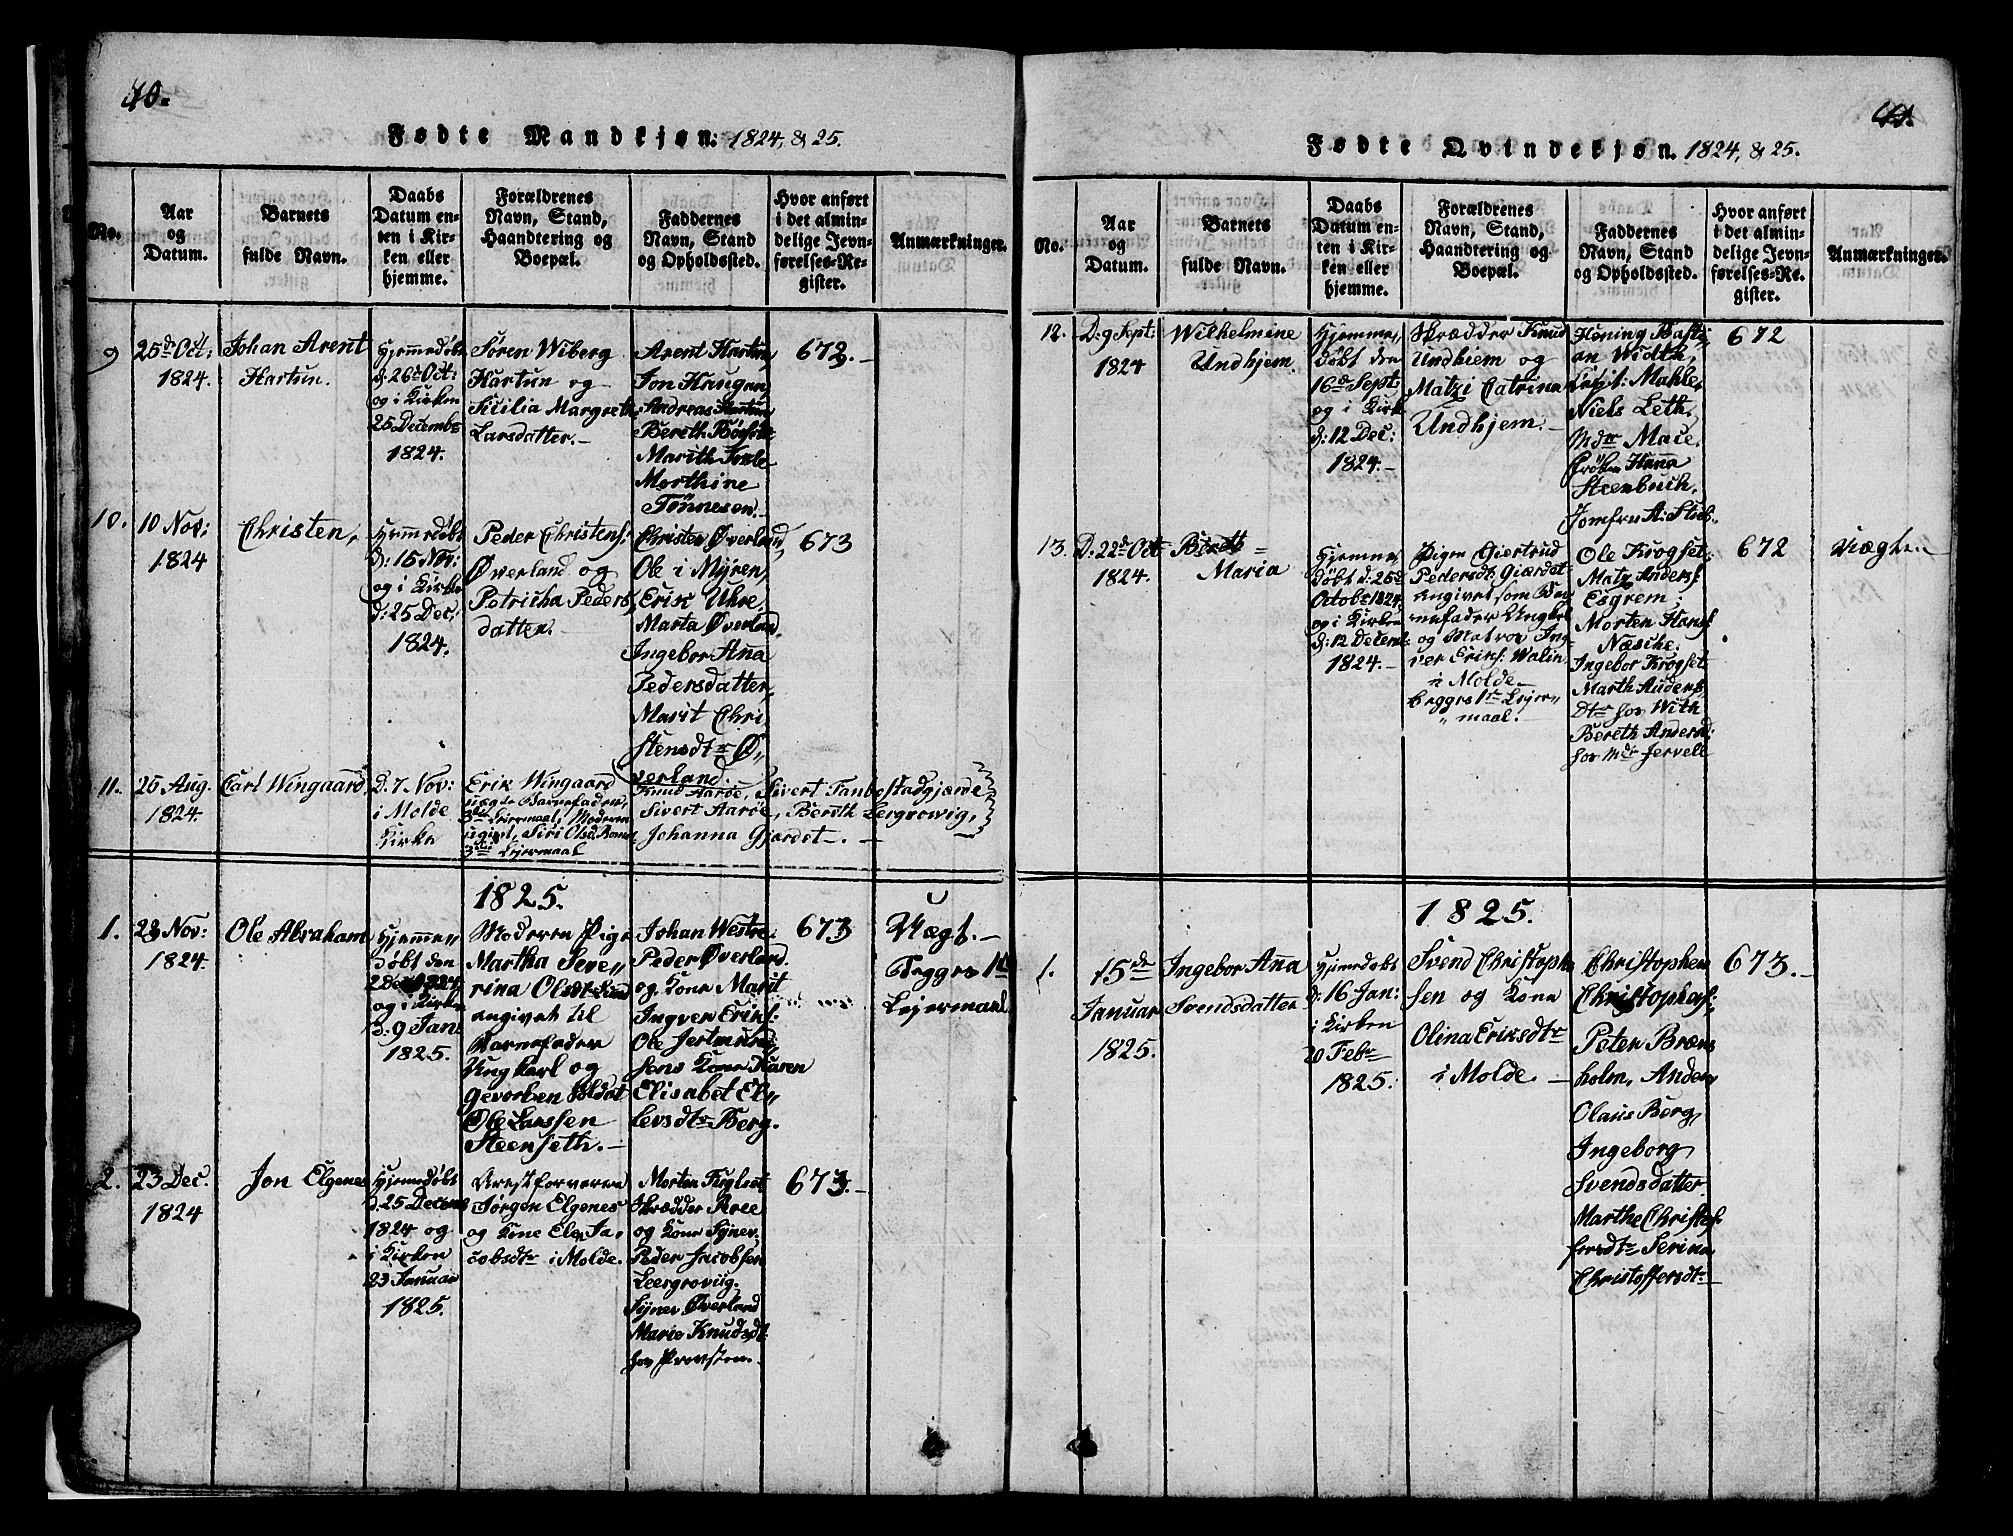 40.
Fødte Mandkjøn: 1824, & 25.
No.
Aar
og
Datum.
Barnets
fulde Navn.
Daabs
Datum en-
ten i Kir-
ken eller
hjemme.
Forældrenes
Navn, Stand,
Haandtering og
Boepæl.
Faddernes
Navn, Stand
og Opholdssted.
Hvor anført
i det almin-
delige Jevn-
førelses-Re-
gister.
Anmærkninger.
9
25de Oct.
1824.
Johan Arent
Hartun.
Hjemmedøbt
d: 26de Oct:
og i Kirken
25 Decembr
1824.
Søren Wiberg
Hartun og
Sicilia Margreth
Larsdatter.-
Arent Hartun,
Jon Haugen,
Andreas Hartun
Bereth
Marith
Morthine
Tønnesen.-
673.-
10.
10 Nov:
1824
Christen,
Hjemmedøbt
d: 15 Nov:
og i Kirken
d: 25 Dec,
1824.
Peder Christens:
Øverland og
Petricha Peders
datter.-
Christen Øverland,
Ole i Myren,
Erik Uhre.
Marta Øverland,
Ingebor Ana
Pedersdatter,
Marit Chri
stensdtr Ø,,
verland.
673
11.
25 Aug.
1824.
Carl Wingaard
D. 7. Nov:
i Molde
Kirke
Erik Wingaard
uægte Barnefader,
3die Leiermaal, Moderen
ugivt, Siri Olsd.
3die Lejermaal
Knud Aarøe, Sivert Tanbestadgjærde
Sivert Aarøe, Bereth Lergrovig,
Johanna Gjærdet.-
1825.
1.
28 Nov:
1824.
Ole Abraham
Hjemme,,
døbt den
og i Kirken
d: 9 Jan:
1825.
Moderen Pige
Martha Seve,,
rina Olsdt
angivet til
Barnefader
Ungkarl og
gevorben Soldat
Ole Larssen
Steenseth.-
Johan Westre.
Peder Øverland.
og Kone Marit
Ingver Eriks:
Ole
Jens Kone Karen
Elisabet El,,
levsdtr Berg.
673
Uægt.-
Begges 1ste
Lejermaal
2.
23 Dec.
1824
Jon Elgenes
Hjemmedøbt
d. 25 Decemb
1824 og
i Kirken
23 Januar
1825.
Arestforvarer
Jørgen Elgenes
og Kone Elen Ja,
cobsdtr i Molde.
Morten Fuglset
Skrædder Aree
og Kone Synev.
Peder Jacobsen
Leergroviig.
Synev Øverland
Marie Knudsdt
hos Provsten.-
673.-
41.
Fødte Qvindekjøn. 1824, & 25.
No.
Aar
og
Datum.
Barnets
fulde Navn.
Daabs
Datum en-
ten i Kir-
ken eller
hjemme.
Forældrenes
Navn, Stand,
Haandtering og
Boepæl.
Faddernes
Navn, Stand
og Opholdssted.
Hvor anført
i det almin-
delige Jevn-
førelses-Re-
gister.
Anmærkninger.
12.
D: 9 Sept:
1824
Wilhelmine
Undhjem.
Hjemme,,
døbt den
16de Sept:
og i Kirk
d: 12 Dec:
1824.-
Skrædder Knud
Undhiem og
Matzi Catrina
Undhjem.-
Høning Basti,
an Width,
Capit: Mahler
Niels Leth.
Mdm Mace.
Hana
Steenbuch.
Jomfru A: Stub.,
672
13.
D. 22de Oct
1824.
Bereth =
Maria
Hjemme,,
døbt d: 25de
Octobr 1824.
og i Kirken
d: 12 Decemb:
1824.-
Pigen Giertrud
Pedersdt: Giærdet
angivet som Bar
nefader Ungkrl
og Matros Ing-
ver Eriks: Walin
i Molde.-
begges 1ste Lejer,,
,, maal.-
Ole Krogset.
Matz Anders:
Esgrem;
Morten Hans:
Næsche.
Ingebor Krogset
Marth Anders,
Dtr hos With
Bereth Andersd:
hos Mdr Jervell
672
Uægte.-
1825.
1.
15de
Januar
1825.
Ingebor Ana
Svendsdatter
Hjemedøbt
d: 16 Jan:
i Kirken
20 Febr
1825.
Svend Christoph
sen og Kone
Olina Eriksdtr
i Molde.-
Christopher
Christophers:
Peter Bræns
holm, Anders
Olaus Berg,,
Ingeborg
Svendsdatter
Marthe Christof,
fersdtr Serina
Christoffersdt.-
673.-